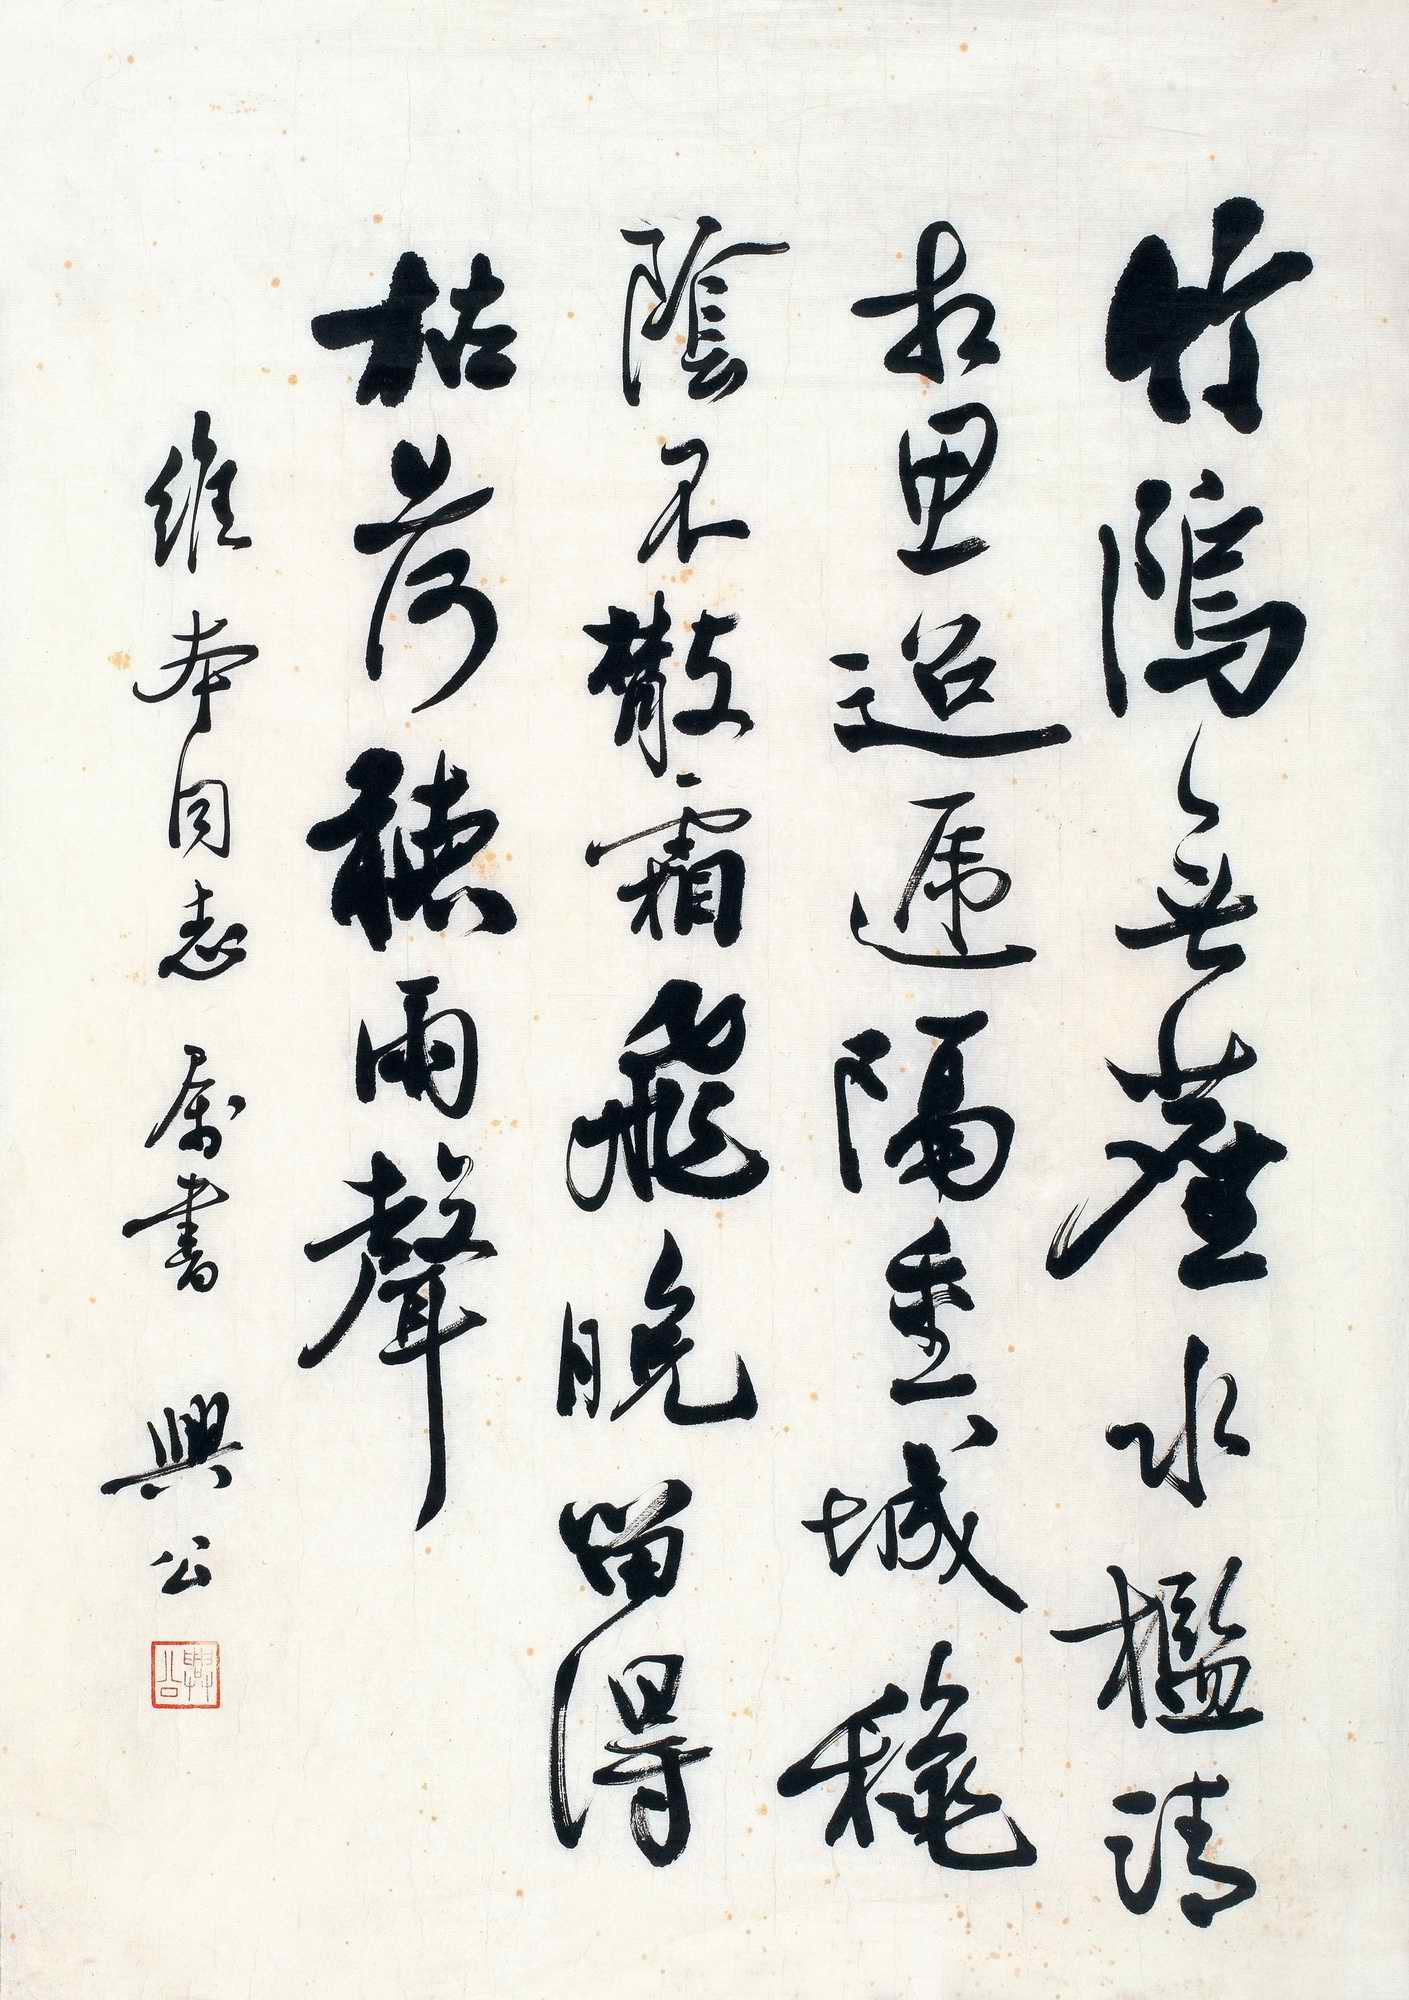 竹隖無塵水檻清
相思迢遞隔重城穐
陰不散霜飛晚留得
枯荷聽雨聲
維本同志屬書 興公
興公